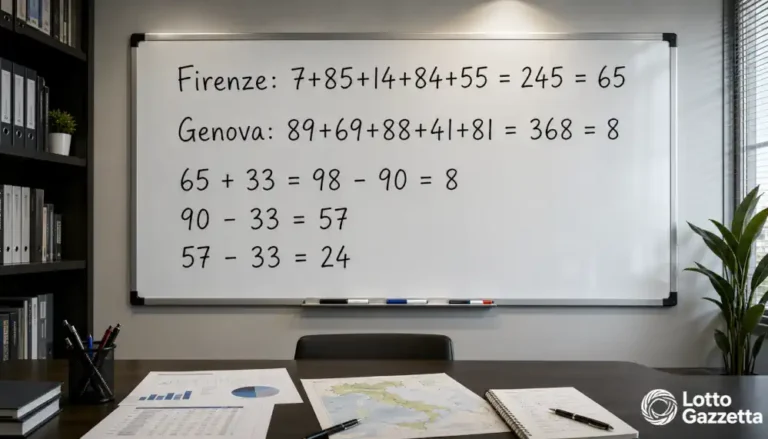 Firenze: 7+85+14+84+55 = 245 = 65
Genova: 89+69+88+41+81 = 368 = 8
65 + 33 = 98 - 90 = 8
90 - 33 = 57
57 - 33 = 24
Lotto
Gazzetta